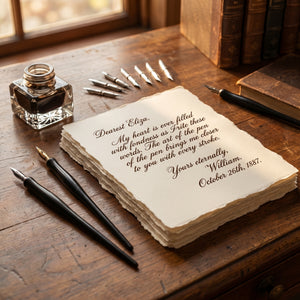 Dearest Eliza,
My heart is ever filled
with fondness as I rite these
words. The art of the pen
of the pen brings me closer
to you with every stroke.
Yours eternally,
William,
October 26th, 1887.